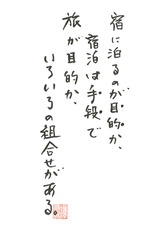 宿に泊るのが目的か、
宿泊は手段で
旅が目的か、
いろいろの組合せがある。